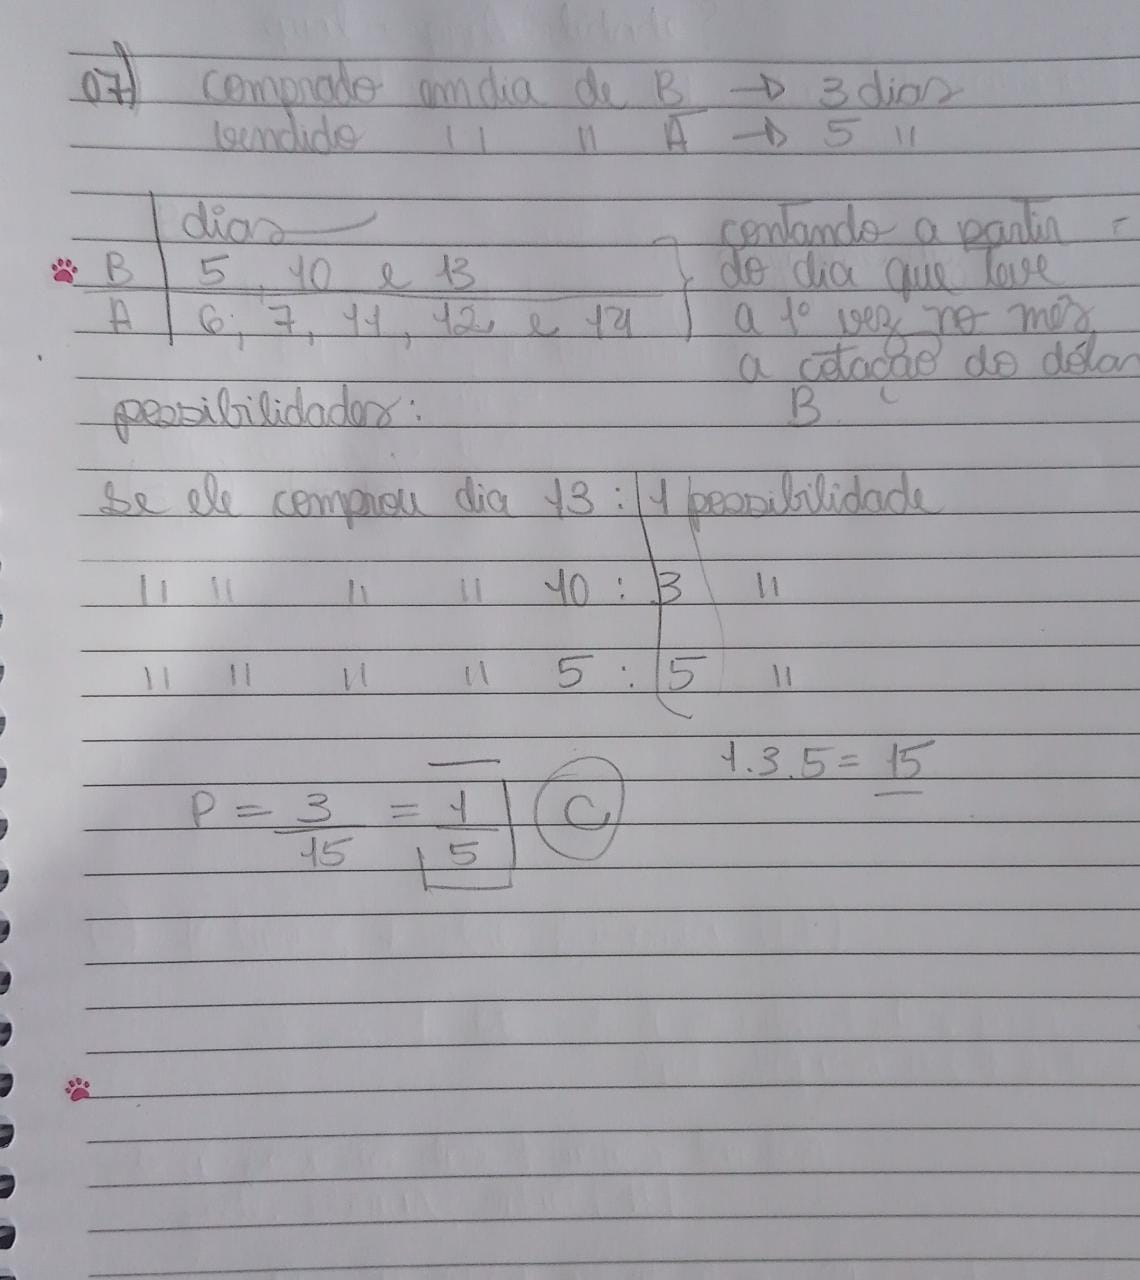 07) comprado em dia de B → 3 dias
vendido 11 11 A → 5 11
dias
B 5, 10 e 13
A 6, 7, 11, 12 e 14
contando a partir
do dia que teve
a 1º vez no mês
a cotação do dólar
B
possibilidades:
Se ele comprou dia 13: 1 possibilidade
11 11 11 11 10: 3 11
11 11 11 11 5: 5 11
1.3.5 = 15
P = 3/15 = 1/5 C